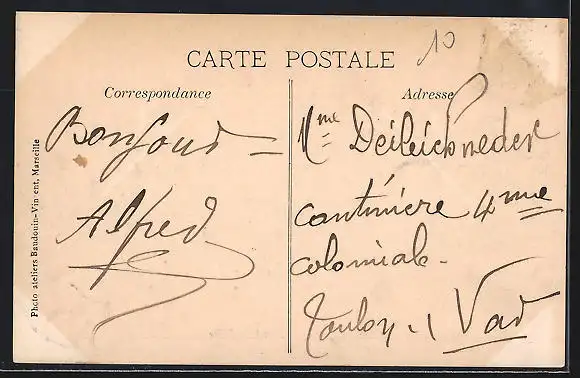 10
CARTE POSTALE
Correspondance
Adresse
Bonjour
Alfred
Mme
cantinière 4me
coloniale.
Toulon Var
Photo ateliers Baudouin-Vincent, Marseille